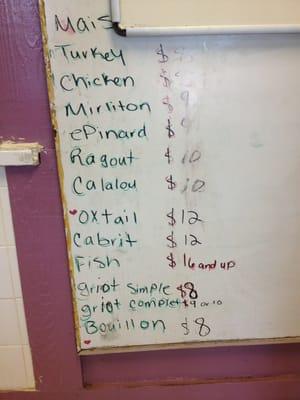 Mais
Turkey $
Chicken $
Mirliton $ 9
ePinard $ 9
Ragout $ 10
Calalou $ 10
oxtail $ 12
Cabrit $ 12
Fish $ 16 and up
griot simple $8
griot complet $9 or 10
Bouillon $8